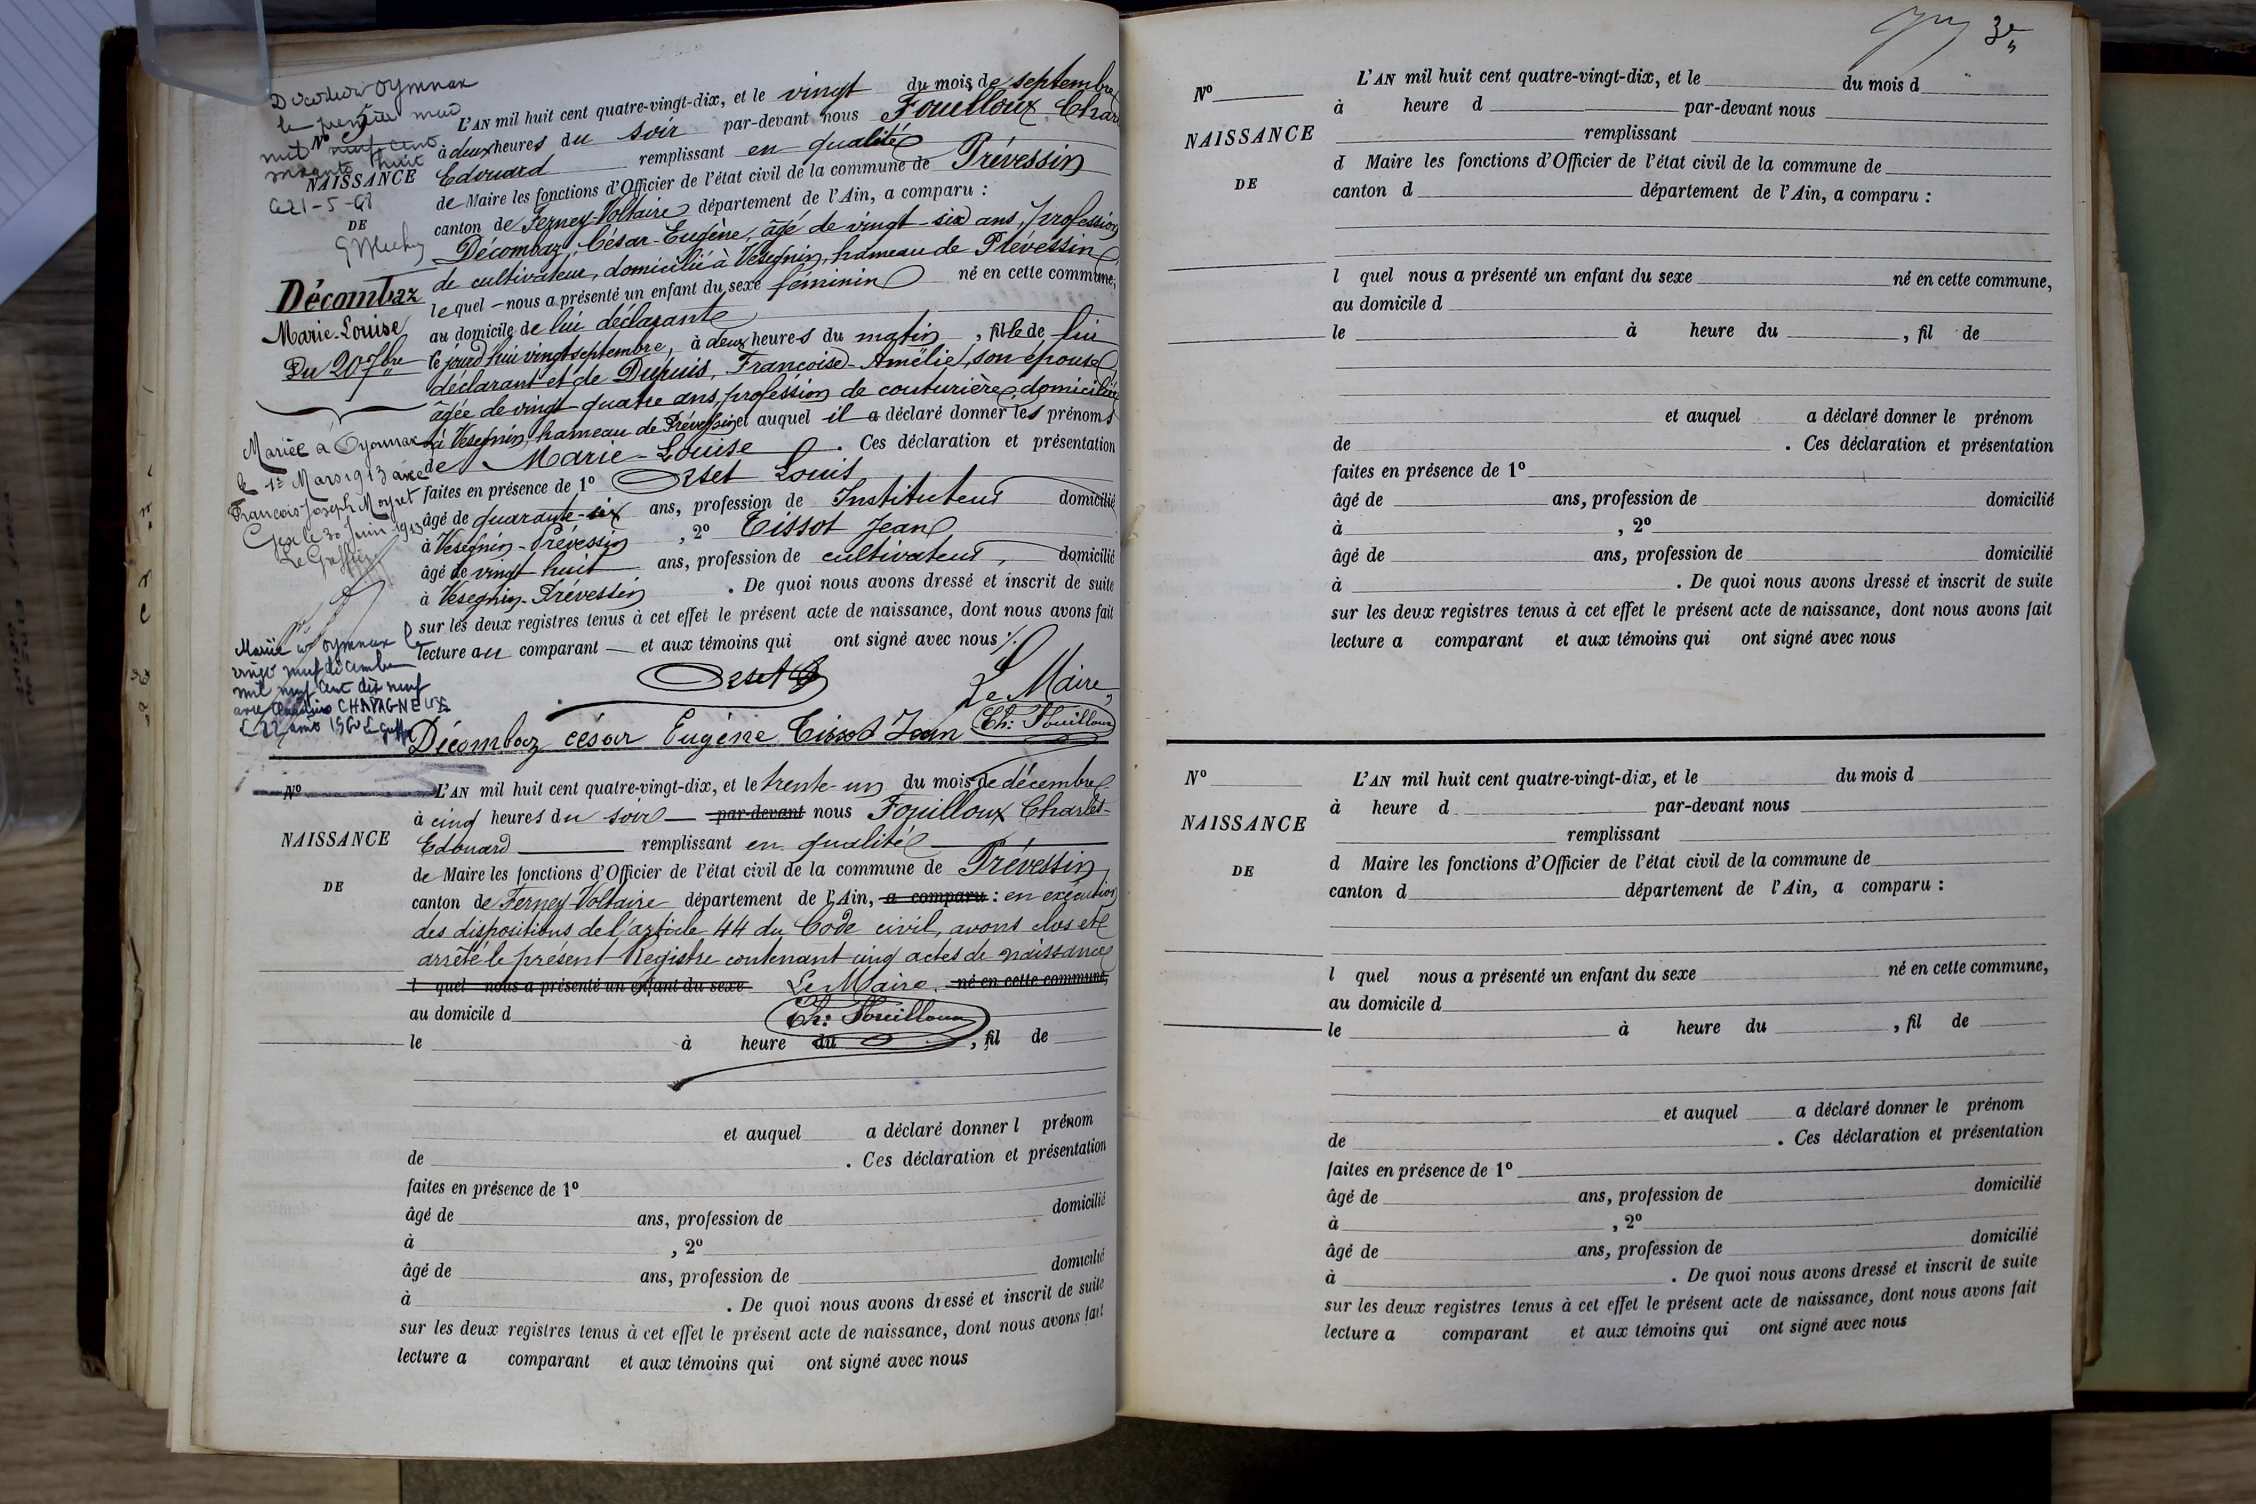 Décédée à Oyonnax
le premier mai
mil neuf cent
soixante huit
Le 21-5-68
N° 5
NAISSANCE
DE
Décombaz
Marie-Louise
Du 20 7bre
Mariée à Oyonnax
le 1er Mars 1913 avec
François Joseph Moyret
Gex le 30 Juin 1913
Le Greffier
Mariée à Oyonnax le
vingt neuf décembre
mil neuf cent dix neuf
avec CHAVAGNEUX
L'AN mil huit cent quatre-vingt-dix, et le vingt du mois de septembre
à deux heures du soir par-devant nous Fouilloux Char
Edouard remplissant en qualité
de Maire les fonctions d'Officier de l'état civil de la commune de Prévessin
canton de Ferney-Voltaire département de l'Ain, a comparu :
Décombaz César-Eugène, âgé de vingt-six ans, profession
de cultivateur, domicilié à Vesegnin, hameau de Prévessin
lequel nous a présenté un enfant du sexe féminin né en cette commune,
au domicile de lui déclarant
le jourd'hui vingt septembre, à deux heures du matin, fille de lui
déclarant et de Dupuis, Françoise-Amélie, son épouse
âgée de vingt-quatre ans, profession de couturière, domiciliée
à Vesegnin hameau de Prévessin et auquel il a déclaré donner les prénoms
de Marie-Louise . Ces déclaration et présentation
faites en présence de 1° Orset Louis
âgé de quarante-six ans, profession de Instituteur domicilié
à Vesegnin-Prévessin , 2° Tissot Jean
âgé de vingt huit ans, profession de cultivateur, domicilié
à Vesegnin-Prévessin . De quoi nous avons dressé et inscrit de suite
sur les deux registres tenus à cet effet le présent acte de naissance, dont nous avons fait
lecture au comparant et aux témoins qui ont signé avec nous
Orset L
Le Maire,
Décombaz césar Eugène Tissot Jean Ch: Fouilloux
N°
NAISSANCE
DE
L'AN mil huit cent quatre-vingt-dix, et le trente-un du mois de décembre
à cinq heures du soir par-devant nous Fouilloux Charles-
Edouard remplissant en qualité
de Maire les fonctions d'Officier de l'état civil de la commune de Prévessin
canton de Ferney-Voltaire département de l'Ain, a comparu : en exécution
des dispositions de l'article 44 du Code civil, avons clos et
arrêté le présent Registre contenant cinq actes de naissance
l quel nous a présenté un enfant du sexe Le Maire. né en cette commune,
au domicile d Ch: Fouilloux
le à heure du , fil de
et auquel a déclaré donner l prénom
de . Ces déclaration et présentation
faites en présence de 1°
âgé de ans, profession de domicilié
à , 2°
âgé de ans, profession de domicilié
à . De quoi nous avons dressé et inscrit de suite
sur les deux registres tenus à cet effet le présent acte de naissance, dont nous avons fait
lecture a comparant et aux témoins qui ont signé avec nous
N°
NAISSANCE
DE
L'AN mil huit cent quatre-vingt-dix, et le du mois d
à heure d par-devant nous
remplissant
d Maire les fonctions d'Officier de l'état civil de la commune de
canton d département de l'Ain, a comparu :
l quel nous a présenté un enfant du sexe né en cette commune,
au domicile d
le à heure du , fil de
et auquel a déclaré donner le prénom
de . Ces déclaration et présentation
faites en présence de 1°
âgé de ans, profession de domicilié
à , 2°
âgé de ans, profession de domicilié
à . De quoi nous avons dressé et inscrit de suite
sur les deux registres tenus à cet effet le présent acte de naissance, dont nous avons fait
lecture a comparant et aux témoins qui ont signé avec nous
N°
NAISSANCE
DE
L'AN mil huit cent quatre-vingt-dix, et le du mois d
à heure d par-devant nous
remplissant
d Maire les fonctions d'Officier de l'état civil de la commune de
canton d département de l'Ain, a comparu :
l quel nous a présenté un enfant du sexe né en cette commune,
au domicile d
le à heure du , fil de
et auquel a déclaré donner le prénom
de . Ces déclaration et présentation
faites en présence de 1°
âgé de ans, profession de domicilié
à , 2°
âgé de ans, profession de domicilié
à . De quoi nous avons dressé et inscrit de suite
sur les deux registres tenus à cet effet le présent acte de naissance, dont nous avons fait
lecture a comparant et aux témoins qui ont signé avec nous